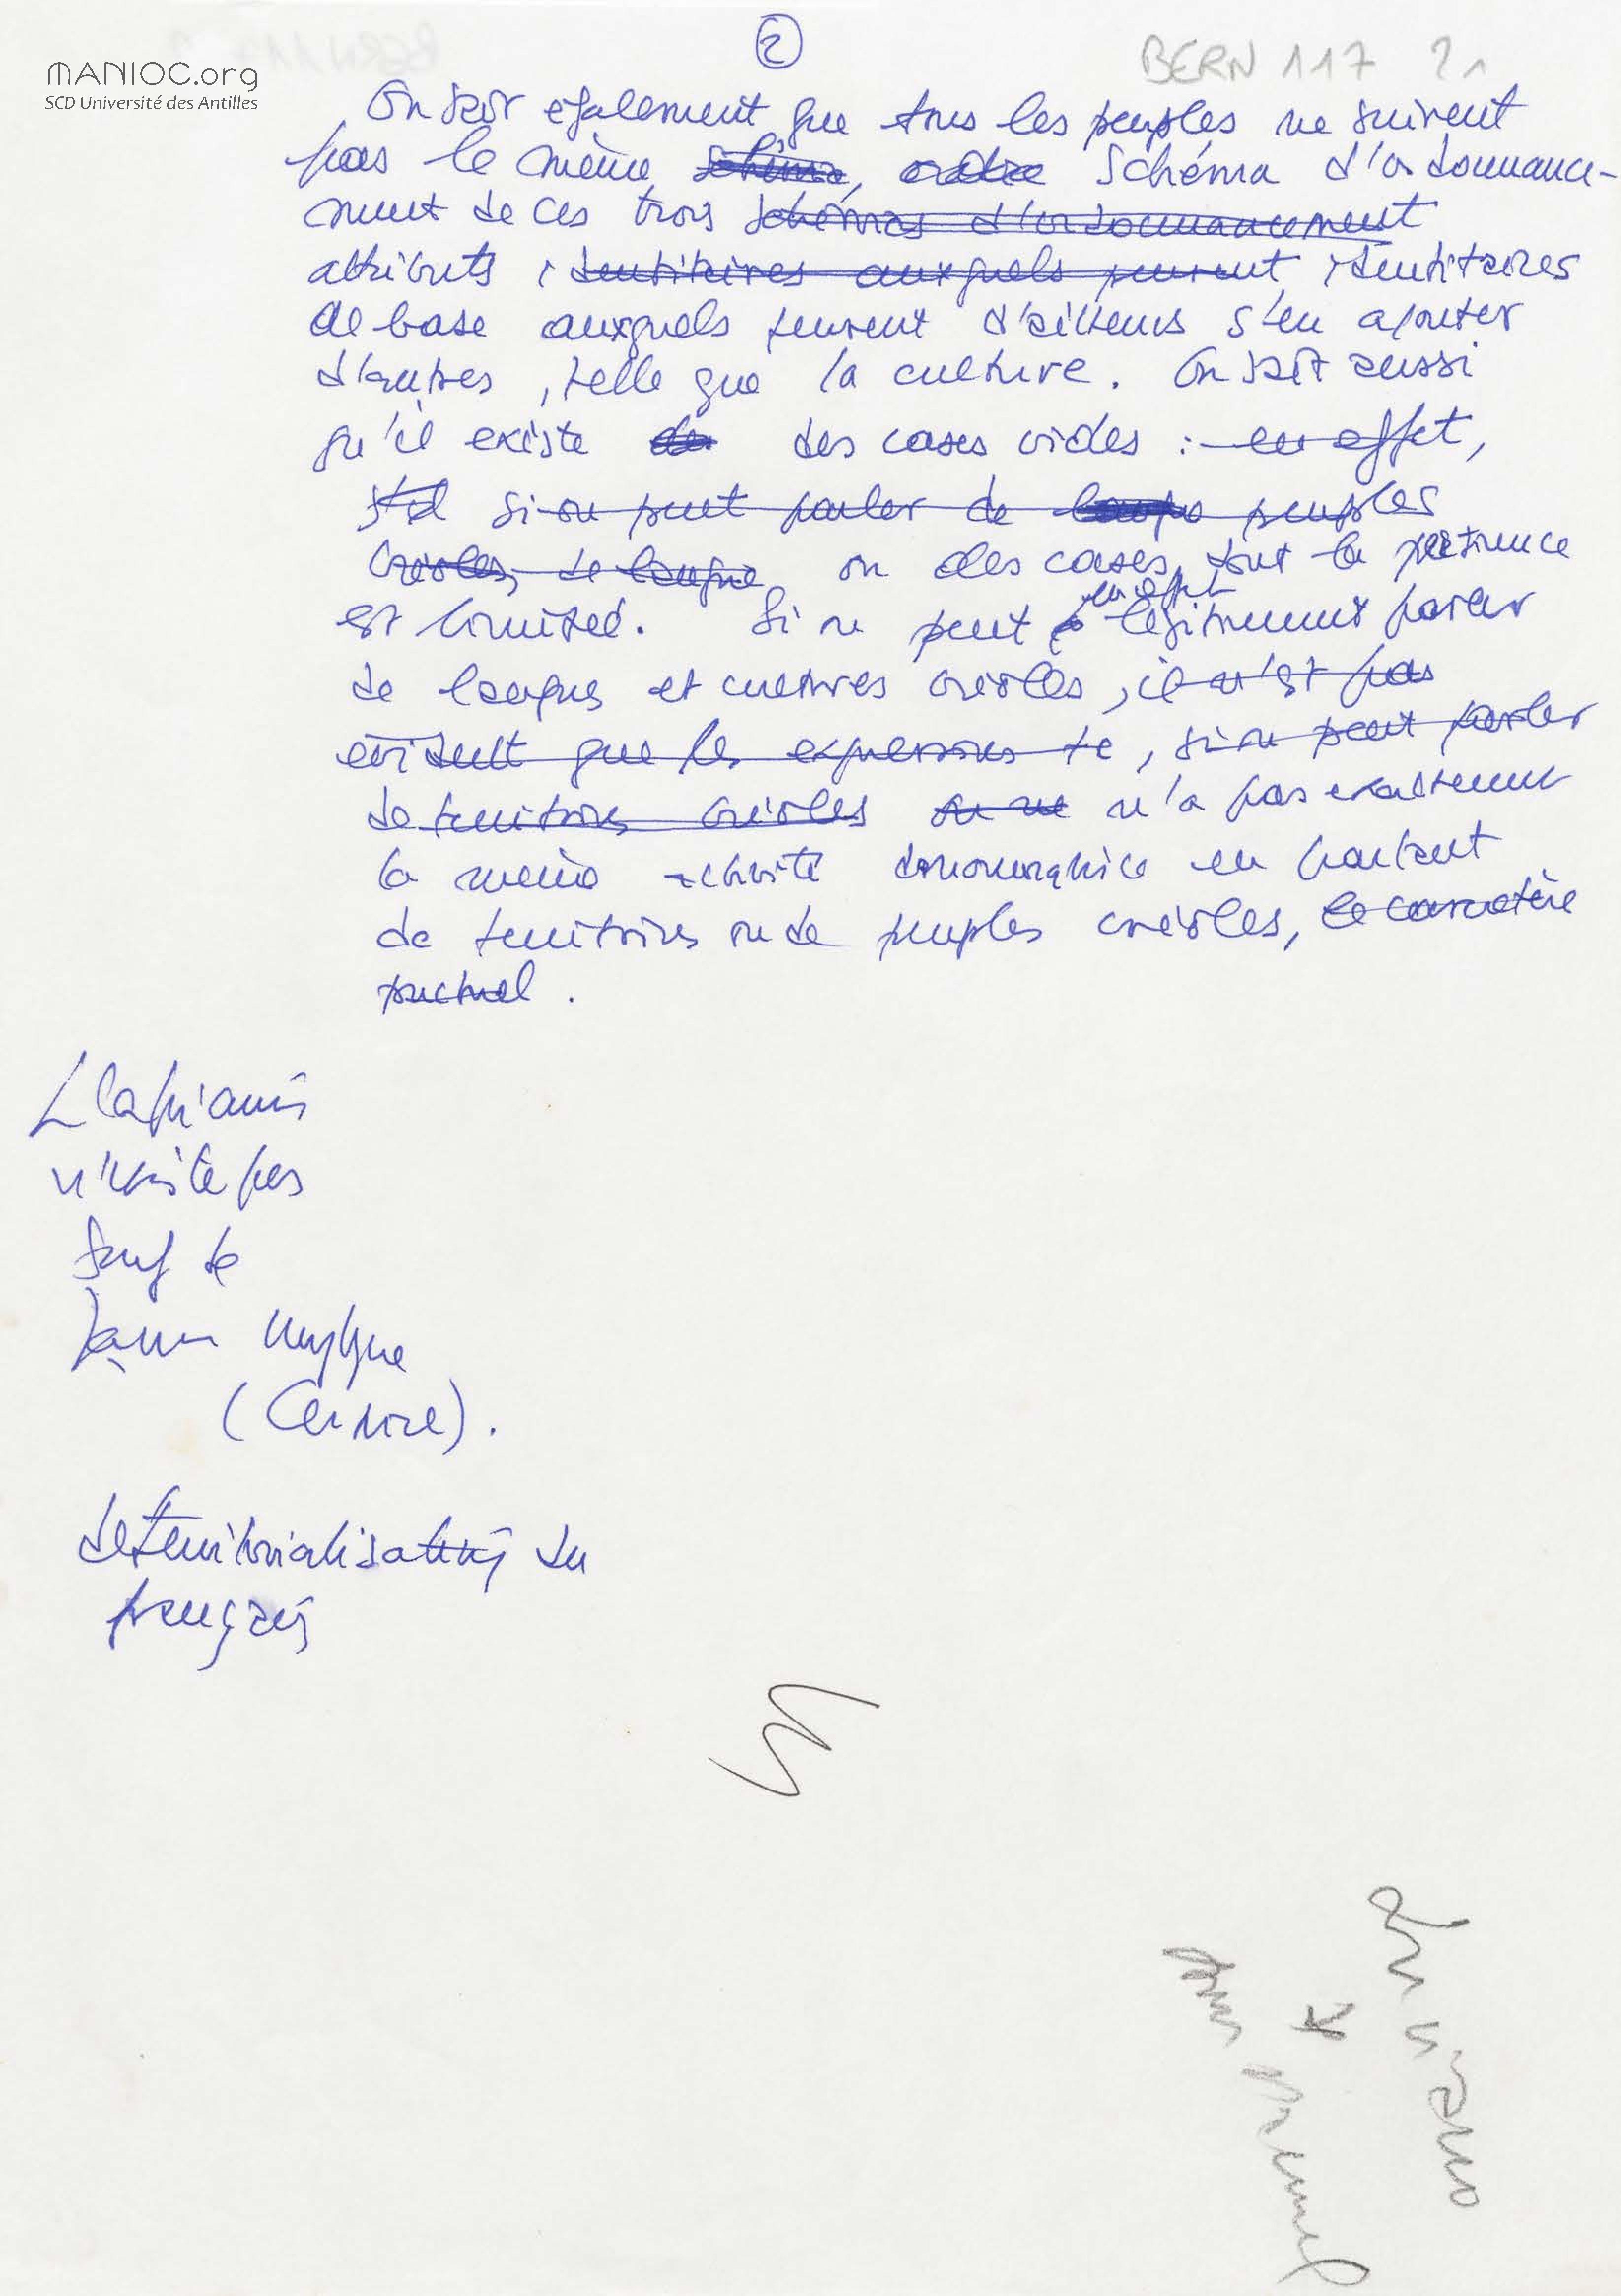 ②
BERN 117 21
MANIOC.org
SCD Université des Antilles
On sait également que tous les peuples ne suivent
pas le même schéma, ordre schéma d'ordonnance-
ment de ces trois schémas d'ordonnancement
attributs identitaires auxquels peuvent identitaires
de base auxquels peuvent d'ailleurs s'en ajouter
d'autres, telle que la culture. On sait aussi
qu'il existe de des cases vides : en effet,
s'il si on peut parler de peuples
créoles, de langue ou des cases dont la pertinence
en effet
est limitée. Si on peut légitimement parler
de langues et cultures créoles, il n'est pas
évident que les expressions te, si on peut parler
de territoires créoles on ne n'a pas exactement
la même en parlant
de territoires ou de peuples créoles, le caractère
.
n'existe pas
sauf de
( ).
déterritorialisation du
français